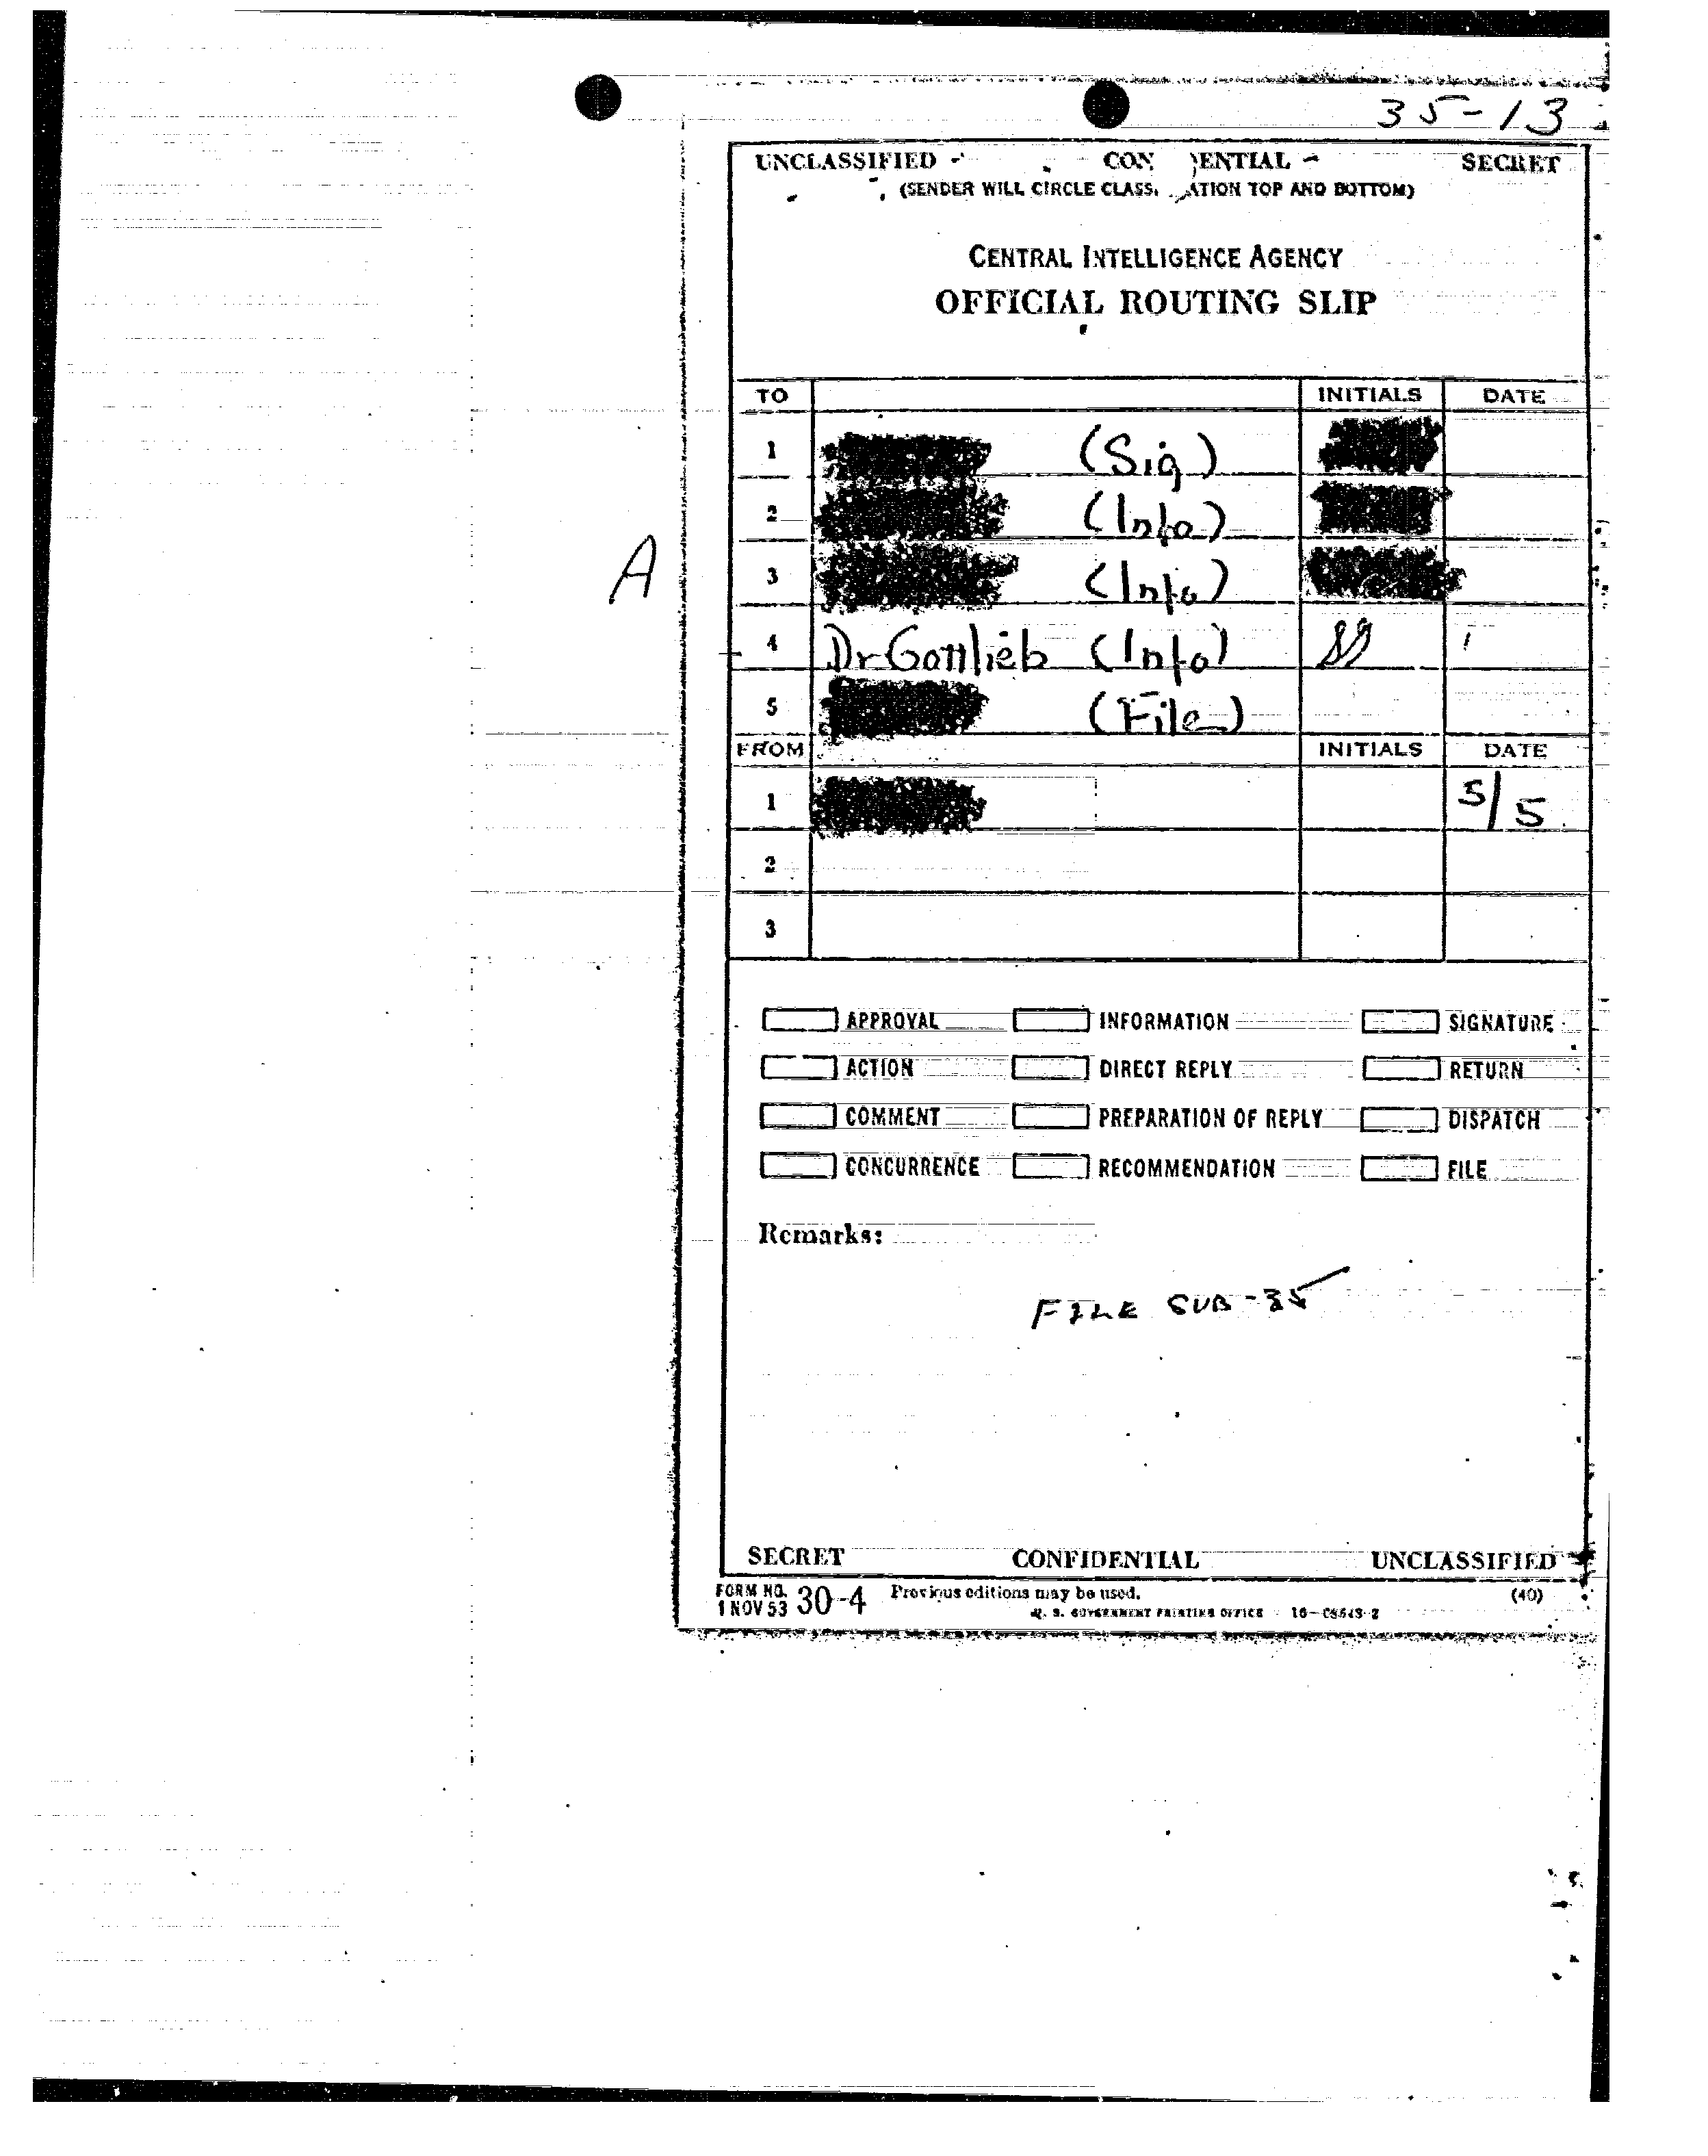 35-13
UNCLASSIFIED CON ENTIAL SECRET
(SENDER WILL CIRCLE CLASS. ATION TOP AND BOTTOM)
CENTRAL INTELLIGENCE AGENCY
OFFICIAL ROUTING SLIP
TO INITIALS DATE
1 (Sig)
2 (Info)
3 (Info)
A
4 Dr Gottlieb (Info) SG
5 (File)
FROM INITIALS DATE
1 5/5
2
3
APPROVAL INFORMATION SIGNATURE
ACTION DIRECT REPLY RETURN
COMMENT PREPARATION OF REPLY DISPATCH
CONCURRENCE RECOMMENDATION FILE
Remarks:
FILE SUB-35
SECRET CONFIDENTIAL UNCLASSIFIED
FORM NO. 30-4 Previous editions may be used. (40)
1 NOV 53 U. S. GOVERNMENT PRINTING OFFICE